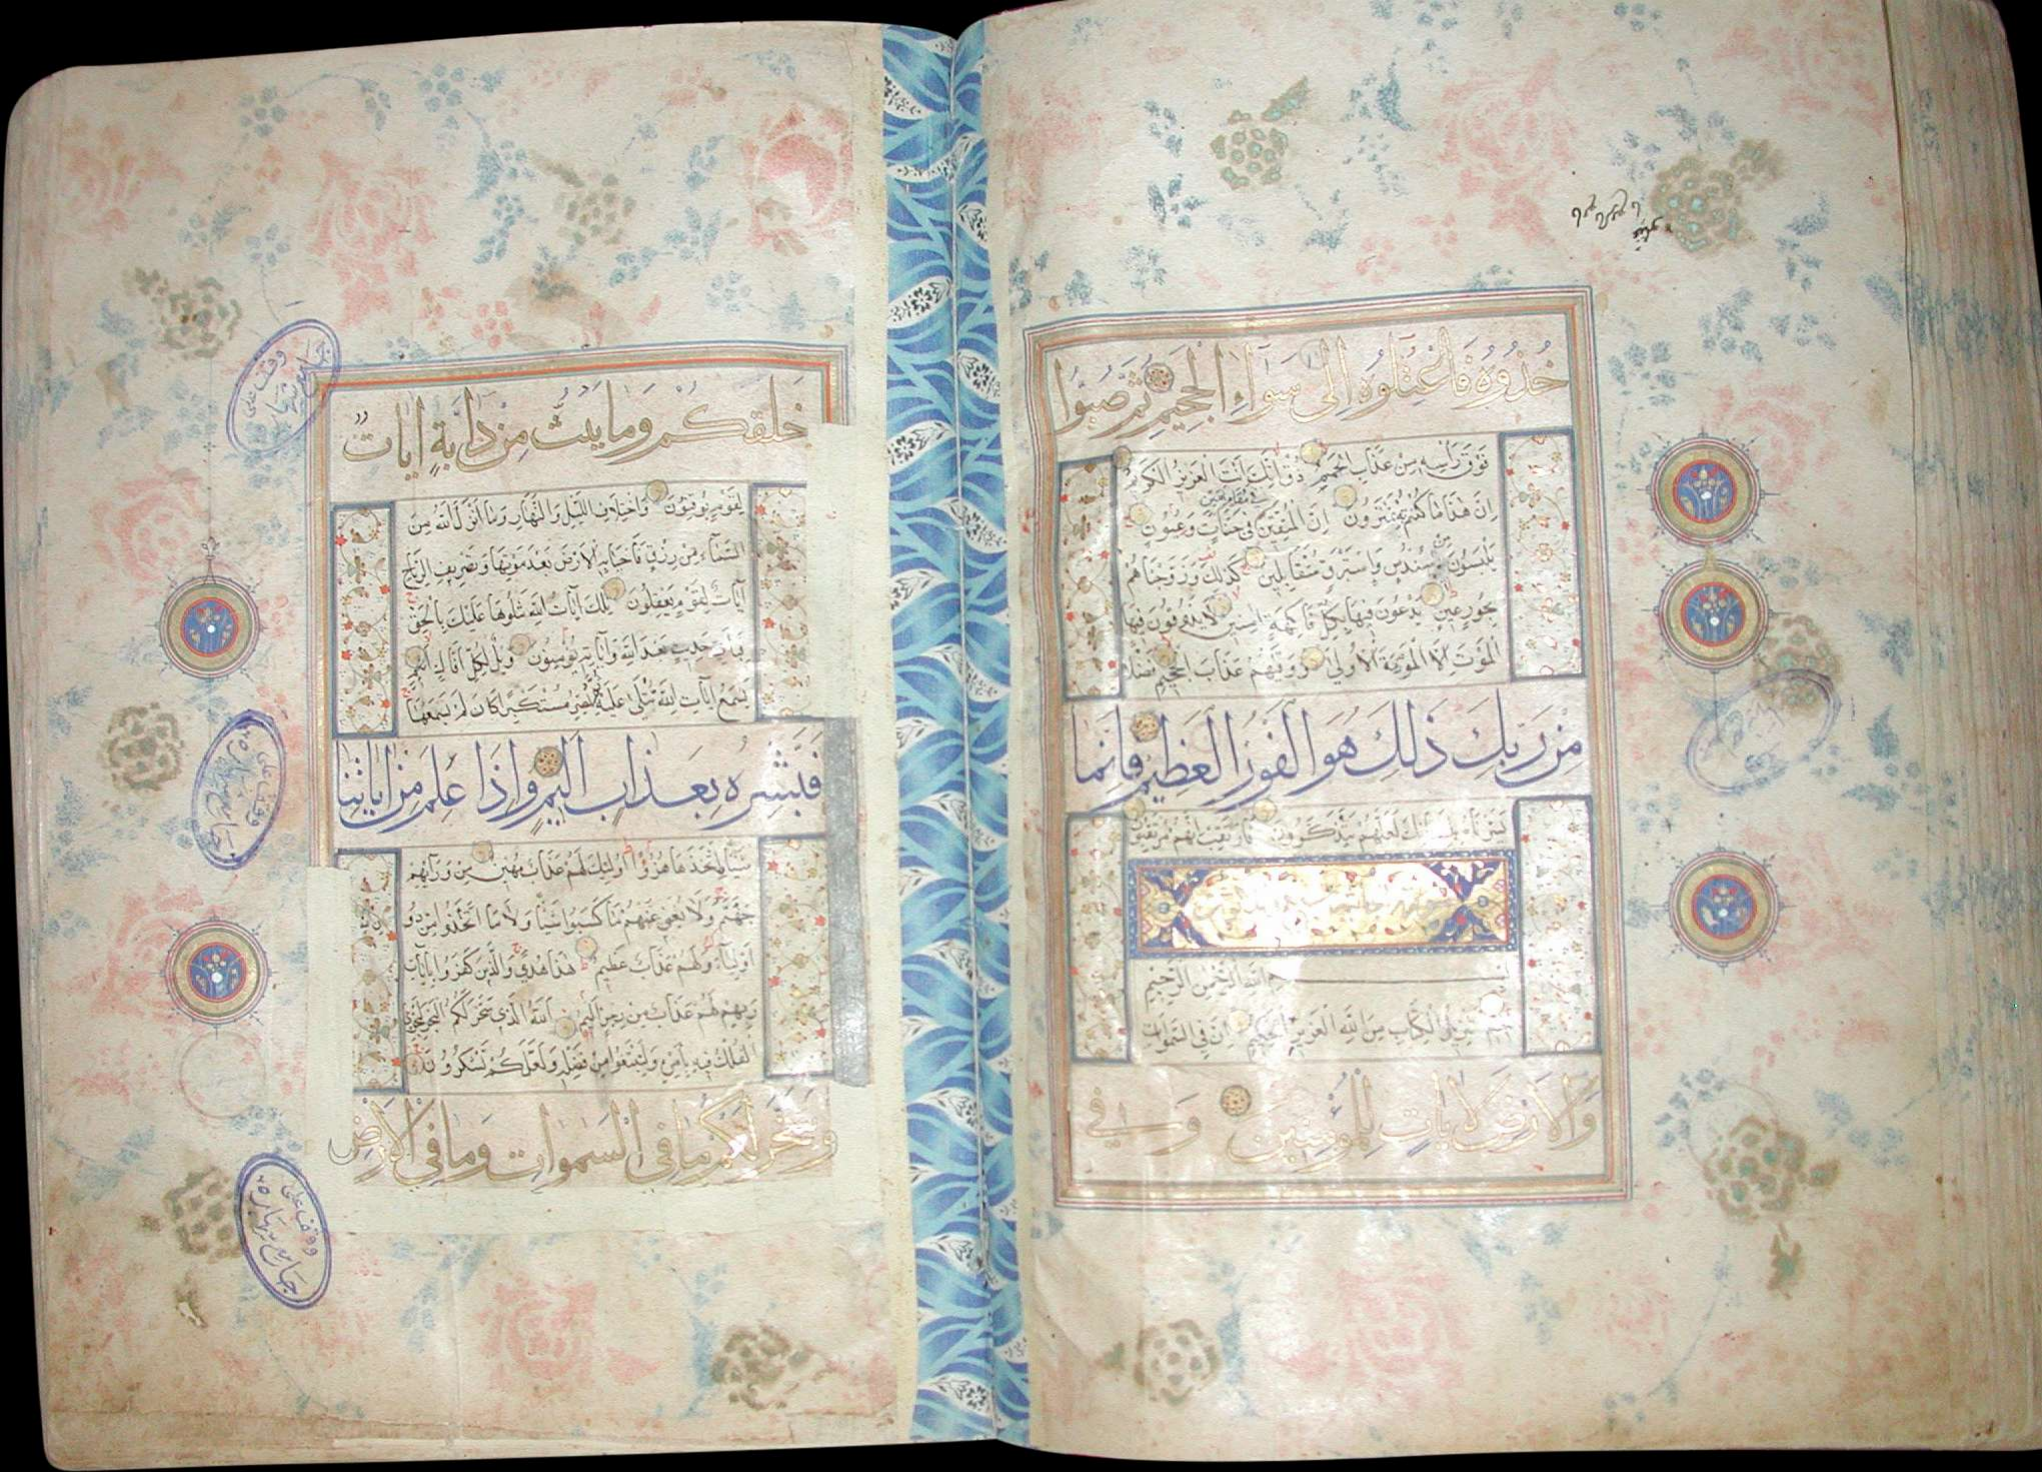 خُذُوهُ فَاعْتِلُوهُ إِلَى سَوَاءِ الْجَحِيمِ ثُمَّ صُبُّوا
فَوْقَ رَأْسِهِ مِنْ عَذَابِ الْحَمِيمِ ذُقْ إِنَّكَ أَنْتَ الْعَزِيزُ الْكَرِيمُ
إِنَّ هَذَا مَا كُنْتُمْ بِهِ تَمْتَرُونَ إِنَّ الْمُتَّقِينَ فِي مَقَامٍ أَمِينٍ فِي جَنَّاتٍ وَعُيُونٍ
يَلْبَسُونَ مِنْ سُنْدُسٍ وَإِسْتَبْرَقٍ مُتَقَابِلِينَ كَذَلِكَ وَزَوَّجْنَاهُمْ
بِحُورٍ عِينٍ يَدْعُونَ فِيهَا بِكُلِّ فَاكِهَةٍ آمِنِينَ لَا يَذُوقُونَ فِيهَا
الْمَوْتَ إِلَّا الْمَوْتَةَ الْأُولَى وَوَقَاهُمْ عَذَابَ الْجَحِيمِ فَضْلًا
مِنْ رَبِّكَ ذَلِكَ هُوَ الْفَوْزُ الْعَظِيمُ فَإِنَّمَا
يَسَّرْنَاهُ بِلِسَانِكَ لَعَلَّهُمْ يَتَذَكَّرُونَ فَارْتَقِبْ إِنَّهُمْ مُرْتَقِبُونَ
اللَّهِ الرَّحْمَنِ الرَّحِيمِ
حم تَنْزِيلُ الْكِتَابِ مِنَ اللَّهِ الْعَزِيزِ الْحَكِيمِ إِنَّ فِي السَّمَوَاتِ
وَالْأَرْضِ لَآيَاتٍ لِلْمُؤْمِنِينَ وَفِي
خَلْقِكُمْ وَمَا يَبُثُّ مِنْ دَابَّةٍ آيَاتٌ
لِقَوْمٍ يُوقِنُونَ وَاخْتِلَافِ اللَّيْلِ وَالنَّهَارِ وَمَا أَنْزَلَ اللَّهُ مِنَ
السَّمَاءِ مِنْ رِزْقٍ فَأَحْيَا بِهِ الْأَرْضَ بَعْدَ مَوْتِهَا وَتَصْرِيفِ الرِّيَاحِ
آيَاتٌ لِقَوْمٍ يَعْقِلُونَ تِلْكَ آيَاتُ اللَّهِ نَتْلُوهَا عَلَيْكَ بِالْحَقِّ
فَبِأَيِّ حَدِيثٍ بَعْدَ اللَّهِ وَآيَاتِهِ يُؤْمِنُونَ وَيْلٌ لِكُلِّ أَفَّاكٍ أَثِيمٍ
يَسْمَعُ آيَاتِ اللَّهِ تُتْلَى عَلَيْهِ ثُمَّ يُصِرُّ مُسْتَكْبِرًا كَأَنْ لَمْ يَسْمَعْهَا
فَبَشِّرْهُ بِعَذَابٍ أَلِيمٍ وَإِذَا عَلِمَ مِنْ آيَاتِنَا
شَيْئًا اتَّخَذَهَا هُزُوًا أُولَئِكَ لَهُمْ عَذَابٌ مُهِينٌ مِنْ وَرَائِهِمْ
جَهَنَّمُ وَلَا يُغْنِي عَنْهُمْ مَا كَسَبُوا شَيْئًا وَلَا مَا اتَّخَذُوا مِنْ دُونِ
أَوْلِيَاءَ وَلَهُمْ عَذَابٌ عَظِيمٌ هَذَا هُدًى وَالَّذِينَ كَفَرُوا بِآيَاتِ
رَبِّهِمْ لَهُمْ عَذَابٌ مِنْ رِجْزٍ أَلِيمٌ اللَّهُ الَّذِي سَخَّرَ لَكُمُ الْبَحْرَ لِتَجْرِيَ
الْفُلْكُ فِيهِ بِأَمْرِهِ وَلِتَبْتَغُوا مِنْ فَضْلِهِ وَلَعَلَّكُمْ تَشْكُرُونَ
وَسَخَّرَ لَكُمْ مَا فِي السَّمَوَاتِ وَمَا فِي الْأَرْضِ